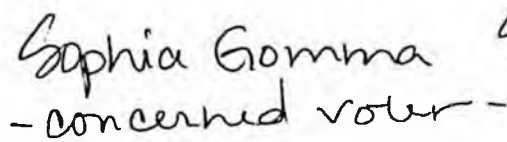 Sophia Gomma
-concerned voter-